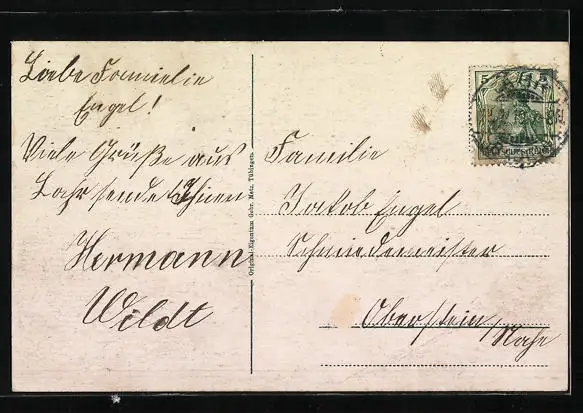 Liebe Famielie
Engel!
Viele Grüße aus
Lahr sendet Ihnen
Hermann
Wildt
Original-Eigentum Gebr. Metz, Tübingen.
5
LAHR
Familie
Jakob Engel
Schmiedemeister
Oberstein/Nahe